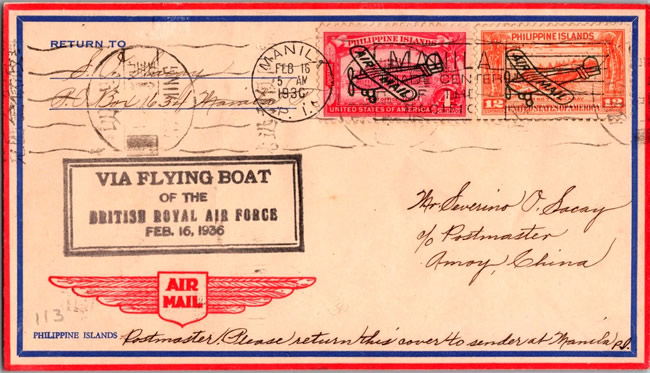 RETURN TO
P.O. Box 634 Manila
MANILA
FEB 16
5 AM
1936
P.I.
PHILIPPINE ISLANDS
AIR MAIL
UNITED STATES OF AMERICA
PHILIPPINE ISLANDS
AIR MAIL
12 12
UNITED STATES OF AMERICA
MANILA
TRADE CENTER
OF THE
VIA FLYING BOAT
OF THE
BRITISH ROYAL AIR FORCE
FEB. 16, 1936
Mr. Severino O. Socay
c/o Postmaster
Amoy, China
AIR
MAIL
113
PHILIPPINE ISLANDS
Postmaster: Please return this cover to sender at Manila P.I.